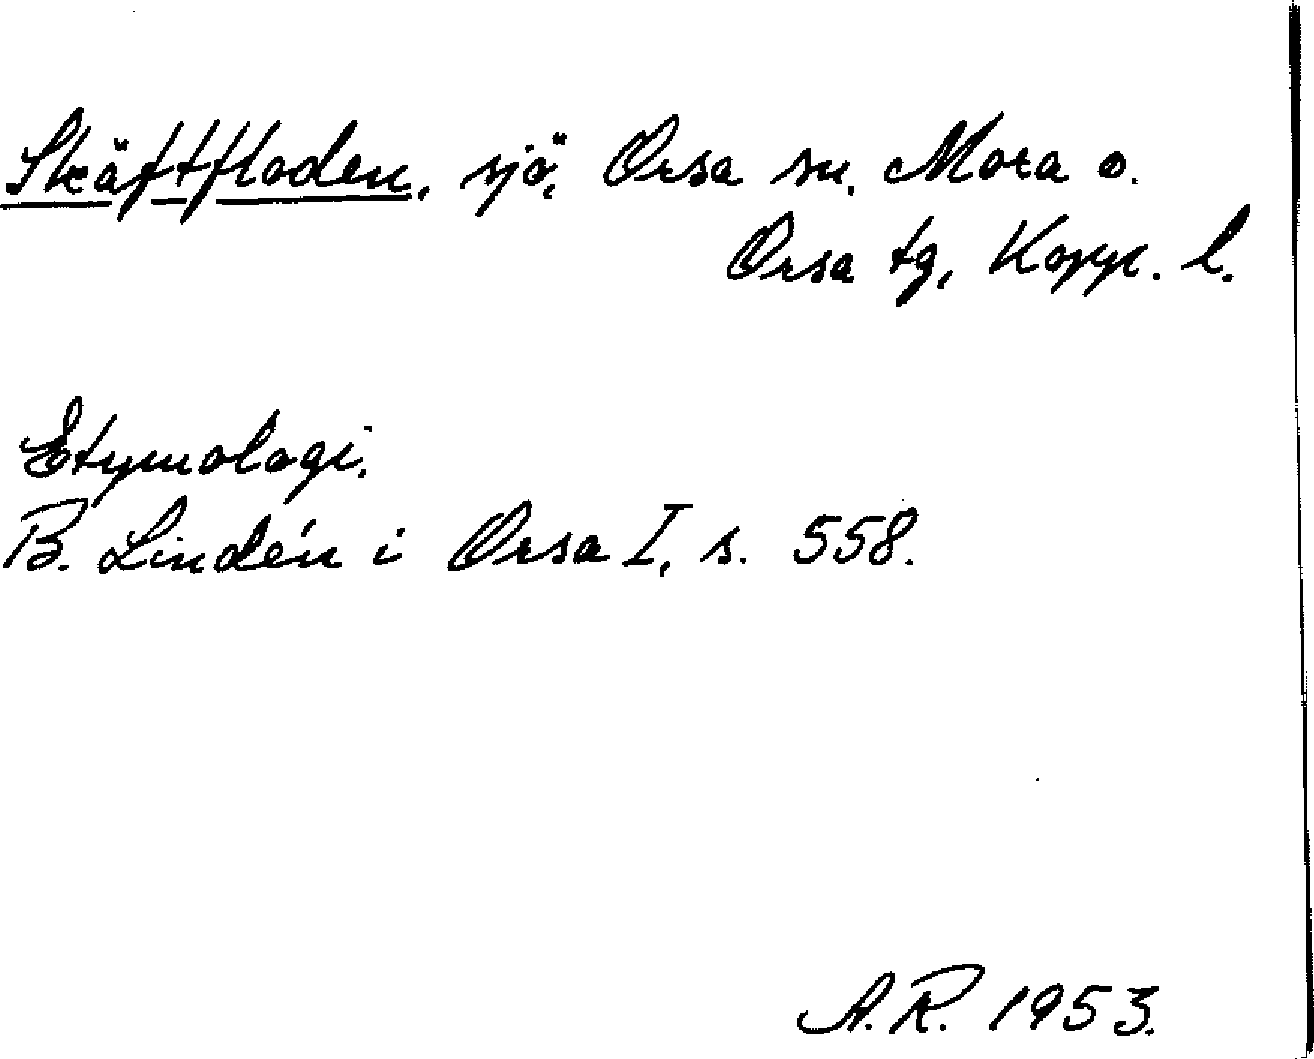 Skäftfloden, sjö, Orsa sn, Mora o.
Orsa tg, Kopp. l.
Etymologi.
B. Lindén i Orsa I, s. 558.
A.R. 1953.